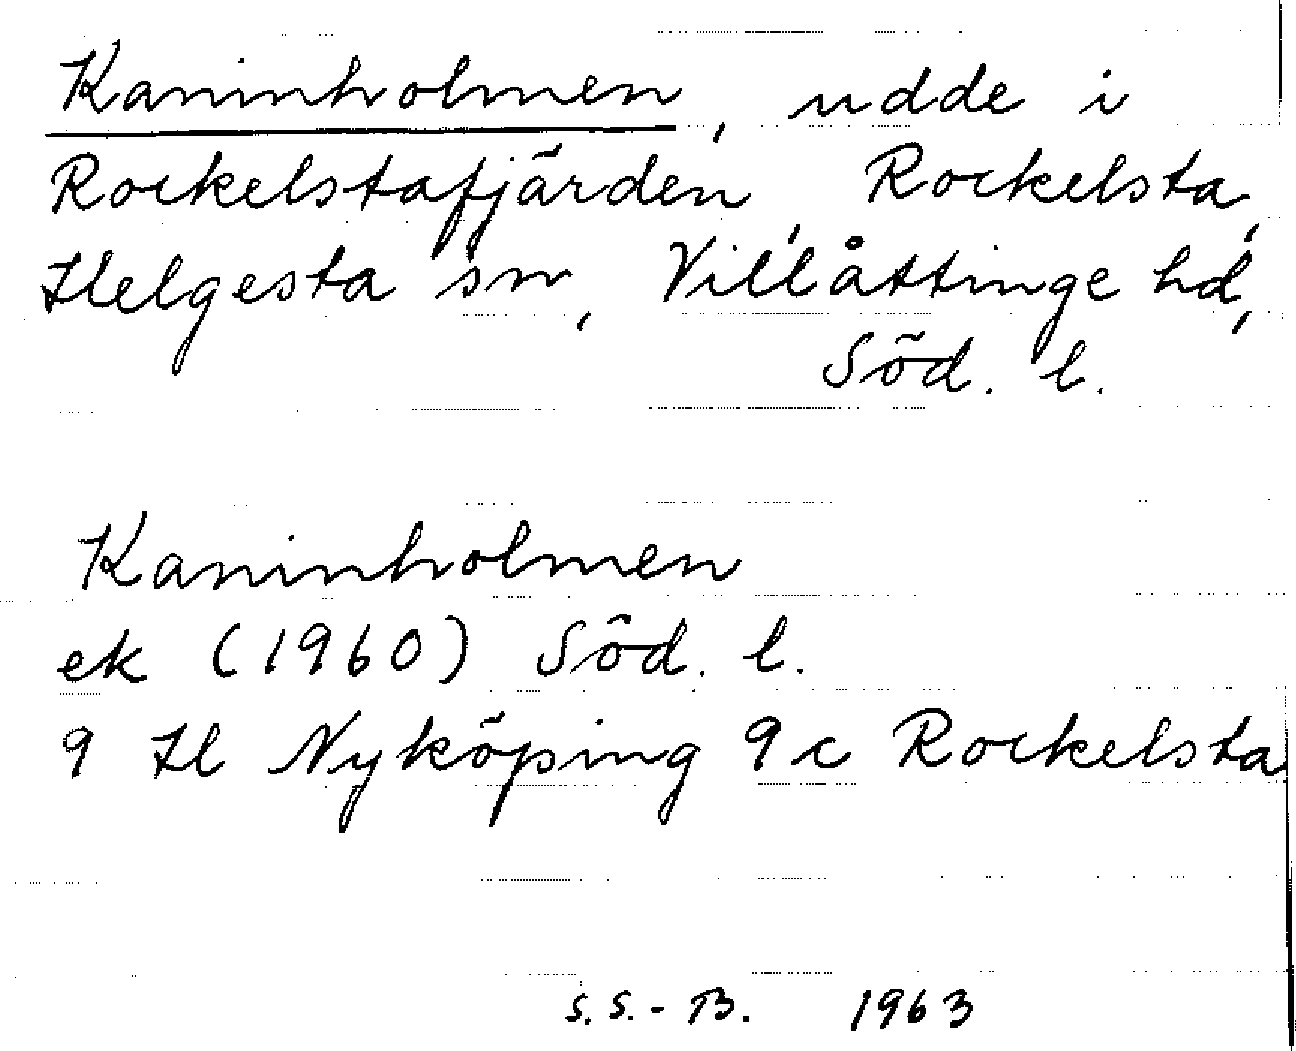 Kaninholmen, udde i
Rockelstafjärden, Rockelsta,
Helgesta sn, Villåttinge hd,
Söd. l.
Kaninholmen
ek (1960) Söd. l.
9 H Nyköping 9 c Rockelsta
S. S.-B. 1963